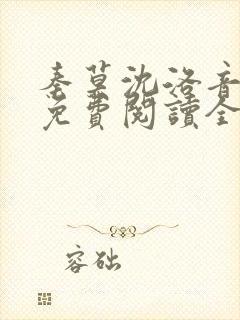 秦莫沈洛音
免費閱讀全
容础